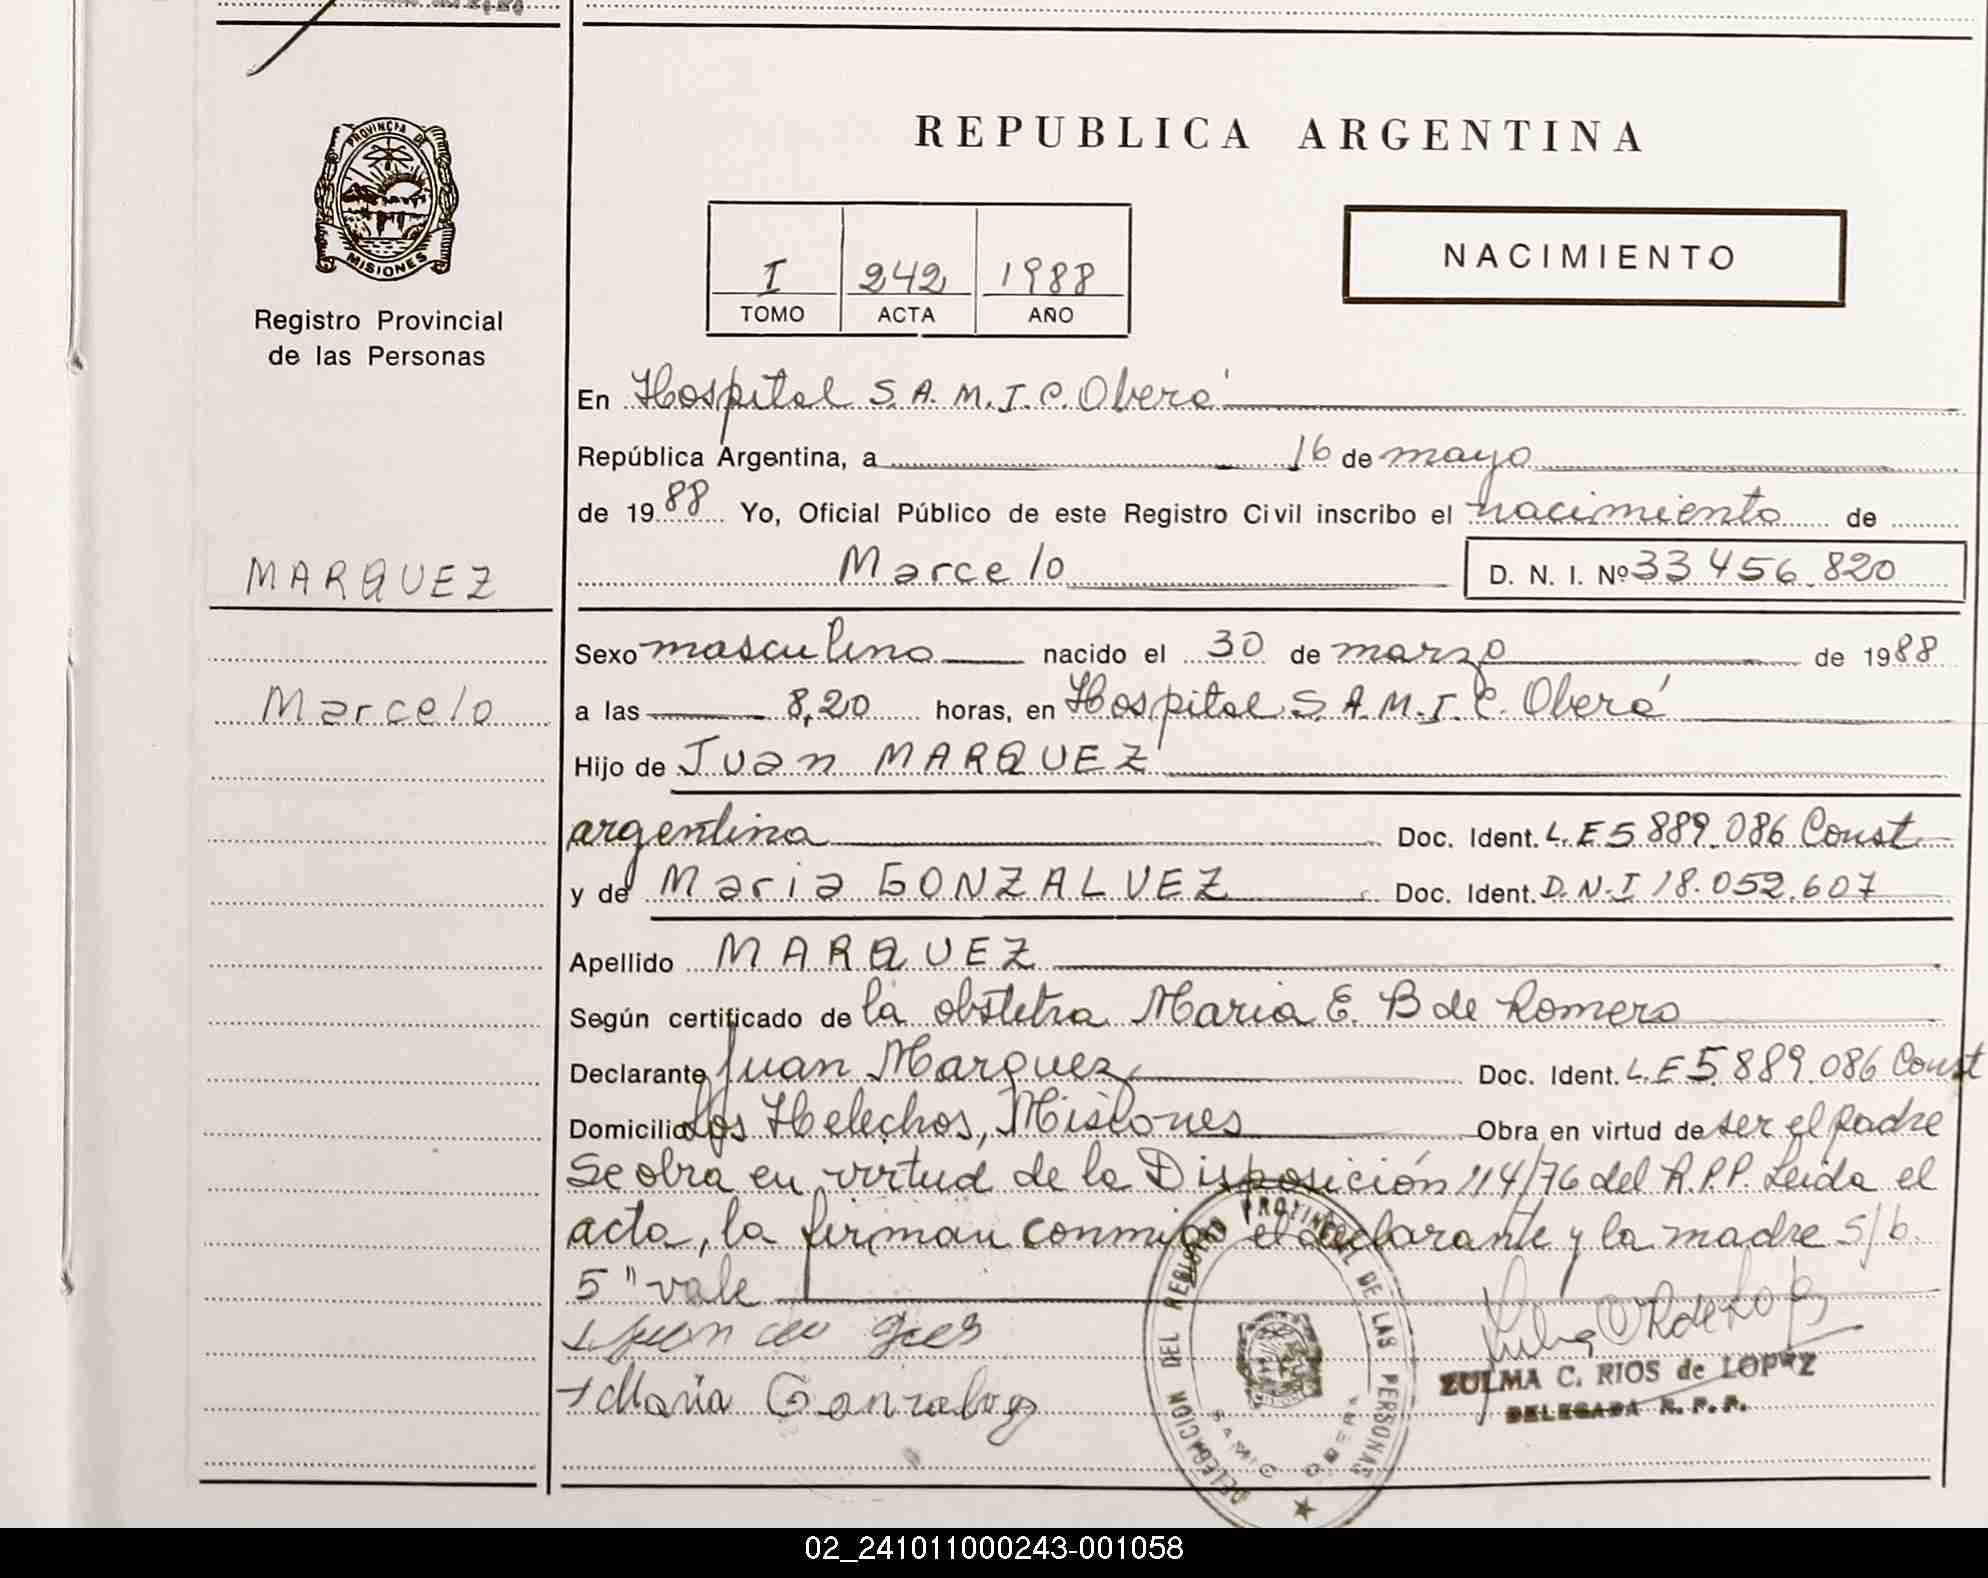 REPUBLICA ARGENTINA
PROVINCIA DE
MISIONES
Registro Provincial
de las Personas
I 242 1988
TOMO ACTA AÑO
NACIMIENTO
En Hospital S.A.M.I.C. Oberá
República Argentina, a 16 de mayo
de 1988 Yo, Oficial Público de este Registro Civil inscribo el nacimiento de
MARQUEZ
Marcelo D. N. I. Nº 33.456.820
Sexo masculino nacido el 30 de marzo de 1988
Marcelo
a las 8,20 horas, en Hospital S.A.M.I.C. Oberá
Hijo de Juan MARQUEZ
argentina Doc. Ident. L.E 5.889.086 Const
y de Maria GONZALVEZ Doc. Ident. D.N.I 18.052.607
Apellido MARQUEZ
Según certificado de la obstetra Maria E. B de Romero
Declarante Juan Marquez Doc. Ident. L.E 5.889.086 Const
Domicilio Los Helechos, Misiones Obra en virtud de ser el padre
Se obra en virtud de la Disposición 114/76 del R.P.P. Leida el
acta, la firman conmigo el declarante y la madre S/b.
5" vale
Maria Gonzalvez
ZULMA C. RIOS de LOPEZ
DELEGADA R. P. P.
DELEGACION DEL REGISTRO PROVINCIAL DE LAS PERSONAS
SAMIC OBERA
02_241011000243-001058